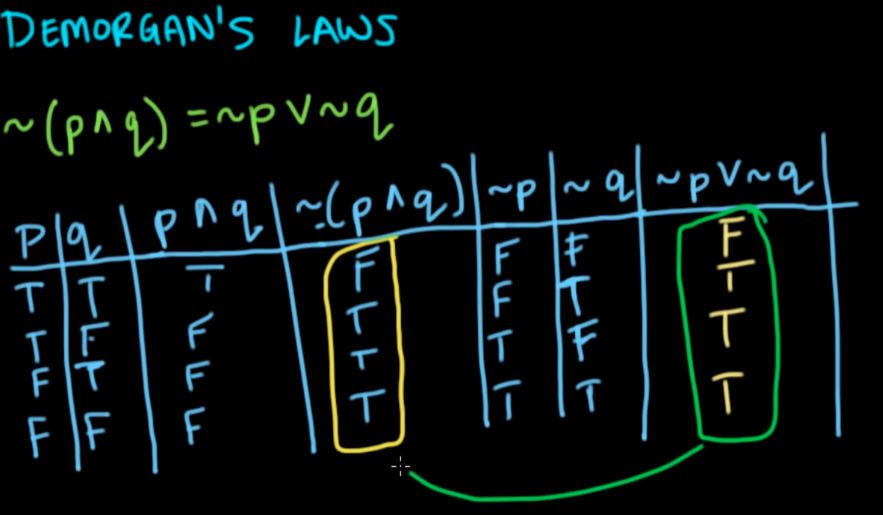 DEMORGAN'S LAWS
~(p∧q) = ~p ∨ ~q
P q p ∧ q ~(p ∧ q) ~p ~q ~p ∨ ~q
T T T F F F F
T F F T F T T
F T F T T F T
F F F T T T T